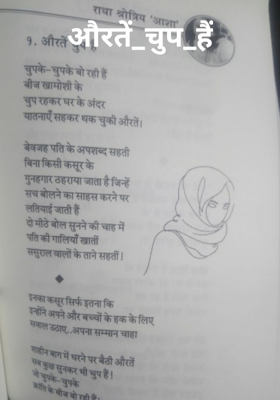 राधा श्रोत्रिय 'आशा'
१. औरतें चुप हैं
औरतें_चुप_हैं
चुपके-चुपके बो रही हैं
बीज खामोशी के
चुप रहकर घर के अंदर
यातनाएँ सहकर थक चुकी औरतें।
बेवजह पति के अपशब्द सहती
बिना किसी कसूर के
गुनहगार ठहराया जाता है जिन्हें
सच बोलने का साहस करने पर
लतियाई जाती हैं
दो मीठे बोल सुनने की चाह में
पति की गालियाँ खातीं
ससुराल वालों के ताने सहतीं।
इनका कसूर सिर्फ इतना कि
इन्होंने अपने और बच्चों के हक के लिए
सवाल उठाए..अपना सम्मान चाहा
शाहीन बाग में धरने पर बैठी औरतें
सब कुछ सुनकर भी चुप हैं!
जो चुपके-चुपके
क्रांति के बीज बो रही हैं।